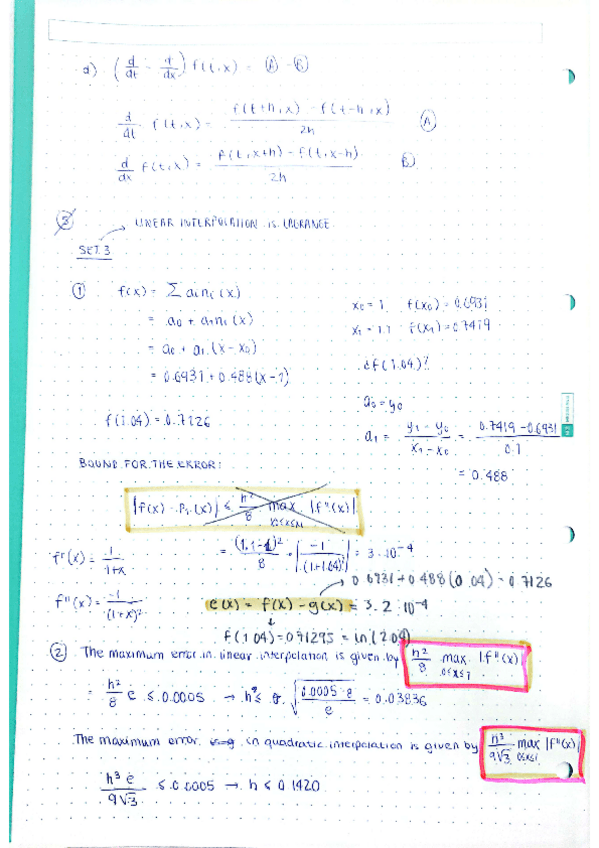 a) (d/dt - d/dx) f(t,x) = Ⓐ - Ⓑ
d/dt f(t,x) = f(t+h,x) - f(t-h,x) / 2h Ⓐ
d/dx f(t,x) = f(t,x+h) - f(t,x-h) / 2h Ⓑ
③ LINEAR INTERPOLATION IS LAGRANGE
SET 3
① f(x) = Σ aini(x)
= a0 + a1n1(x)
= a0 + a1(x-x0)
= 0.6931 + 0.488(x-1)
f(1.04) = 0.7126
x0 = 1 f(x0) = 0.6931
x1 = 1.1 f(x1) = 0.7419
¿f(1.04)?
a0 = y0
a1 = y1 - y0 / x1 - x0 = 0.7419 - 0.6931 / 0.1
= 0.488
BOUND FOR THE ERROR:
|f(x) - P1(x)| ≤ h²/8 max |f''(x)|
f'(x) = 1/1+x
= (1.1-1)²/8 · |-1/(1+1.04)²| = 3·10⁻⁴
0.6931 + 0.488(0.04) = 0.7126
f''(x) = -1/(1+x)²
e(x) = f(x) - g(x) = 3.2·10⁻⁴
f(1.04) = 0.71295 = ln(2.04)
② The maximum error in linear interpolation is given by h²/8 max |f''(x)|
0≤x≤1
= h²/8 e ≤ 0.0005 → h ≤ √0.0005·8/e = 0.03836
The maximum error in quadratic interpolation is given by h³/9√3 max |f'''(x)|
0≤x≤1
h³ e / 9√3 ≤ 0.0005 → h ≤ 0.1420